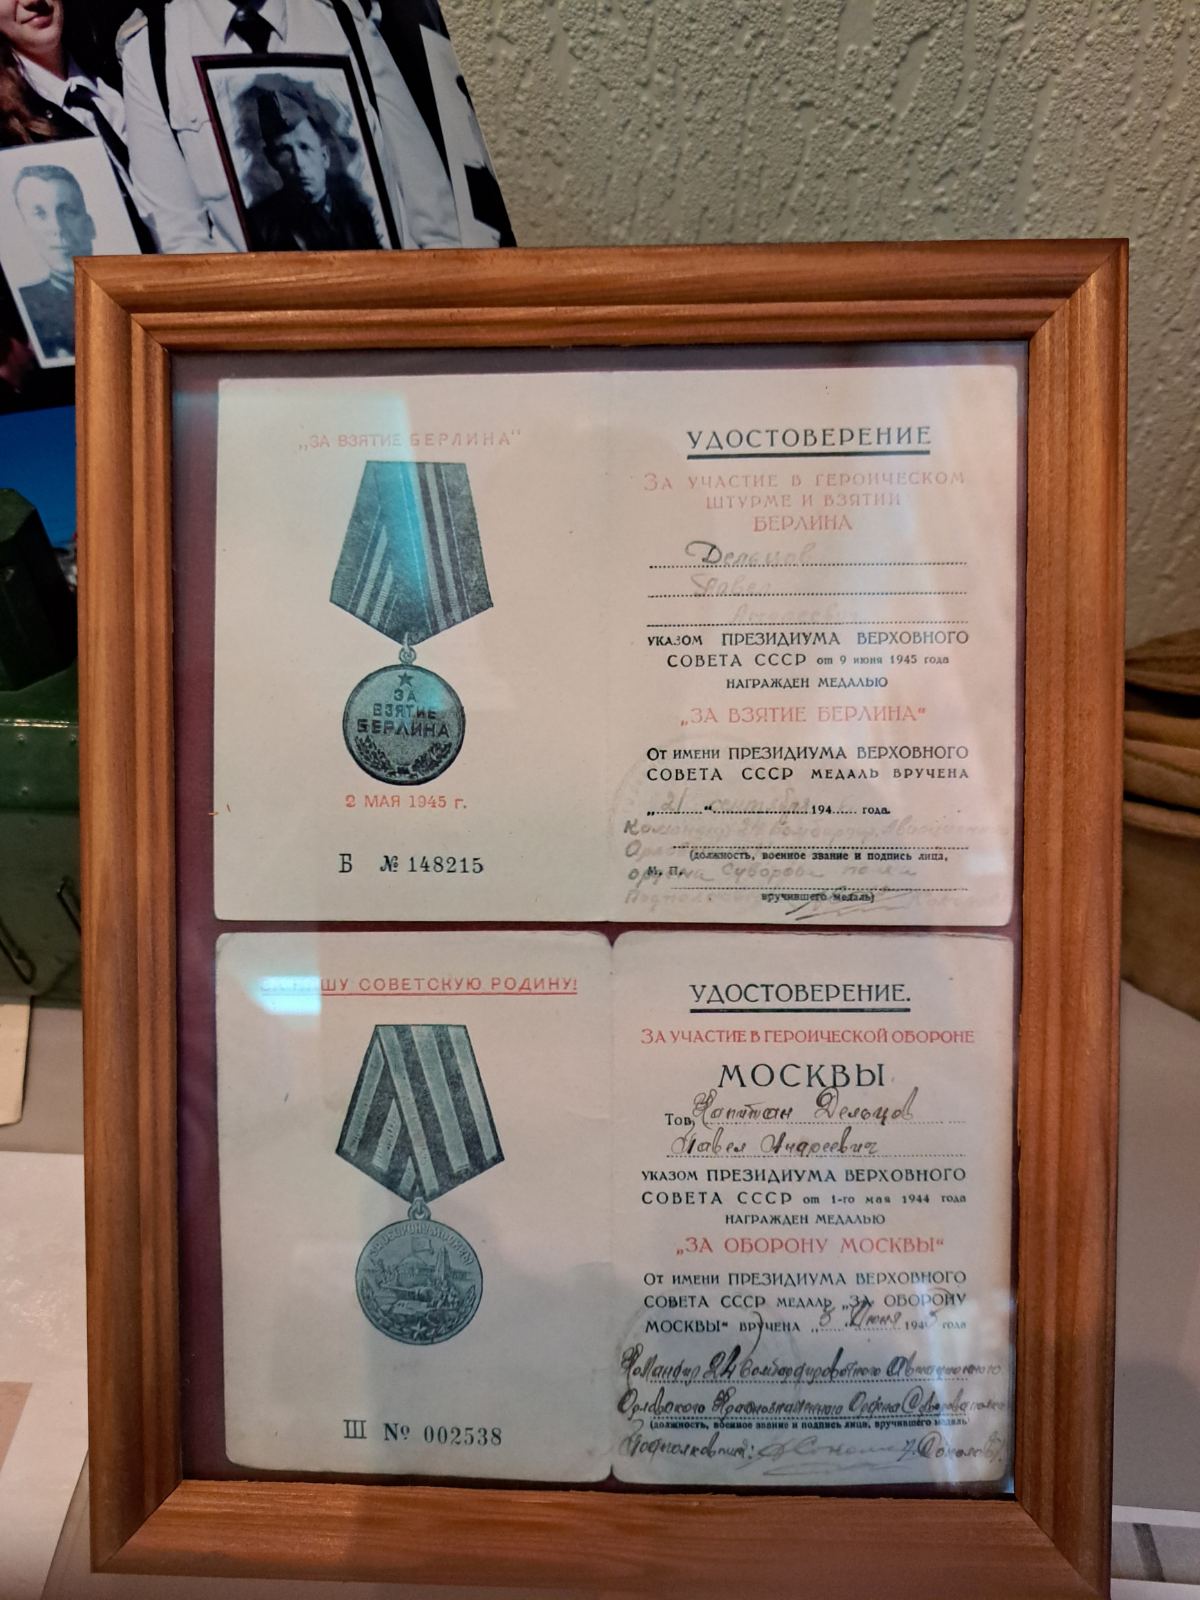 „ЗА ВЗЯТИЕ БЕРЛИНА"
ЗА
ВЗЯТИЕ
БЕРЛИНА
2 МАЯ 1945 г.
Б № 148215
УДОСТОВЕРЕНИЕ
ЗА УЧАСТИЕ В ГЕРОИЧЕСКОМ
ШТУРМЕ И ВЗЯТИИ
БЕРЛИНА
Дельцов
Павел
Андреевич
УКАЗОМ ПРЕЗИДИУМА ВЕРХОВНОГО
СОВЕТА СССР от 9 июня 1945 года
НАГРАЖДЕН МЕДАЛЬЮ
„ЗА ВЗЯТИЕ БЕРЛИНА"
ОТ ИМЕНИ ПРЕЗИДИУМА ВЕРХОВНОГО
СОВЕТА СССР МЕДАЛЬ ВРУЧЕНА
„21" сентября 194 года.
Командир 24 Бомбардир. Авиационного
(должность, военное звание и подпись лица,
М. П. ордена Суворова полка
Подполковник
вручившего медаль)
ЗА НАШУ СОВЕТСКУЮ РОДИНУ!
ЗА ОБОРОНУ МОСКВЫ
III № 002538
УДОСТОВЕРЕНИЕ.
ЗА УЧАСТИЕ В ГЕРОИЧЕСКОЙ ОБОРОНЕ
МОСКВЫ
Тов. Капитан Дельцов
Павел Андреевич
УКАЗОМ ПРЕЗИДИУМА ВЕРХОВНОГО
СОВЕТА СССР от 1-го мая 1944 года
НАГРАЖДЕН МЕДАЛЬЮ
„ЗА ОБОРОНУ МОСКВЫ"
ОТ ИМЕНИ ПРЕЗИДИУМА ВЕРХОВНОГО
СОВЕТА СССР МЕДАЛЬ „ЗА ОБОРОНУ
МОСКВЫ" ВРУЧЕНА „5" Июня 1945 года
Командир 24 Бомбардировочного Авиационного
Орловского Краснознаменного Ордена Суворова полка
(должность, военное звание и подпись лица, вручившего медаль)
Подполковник: